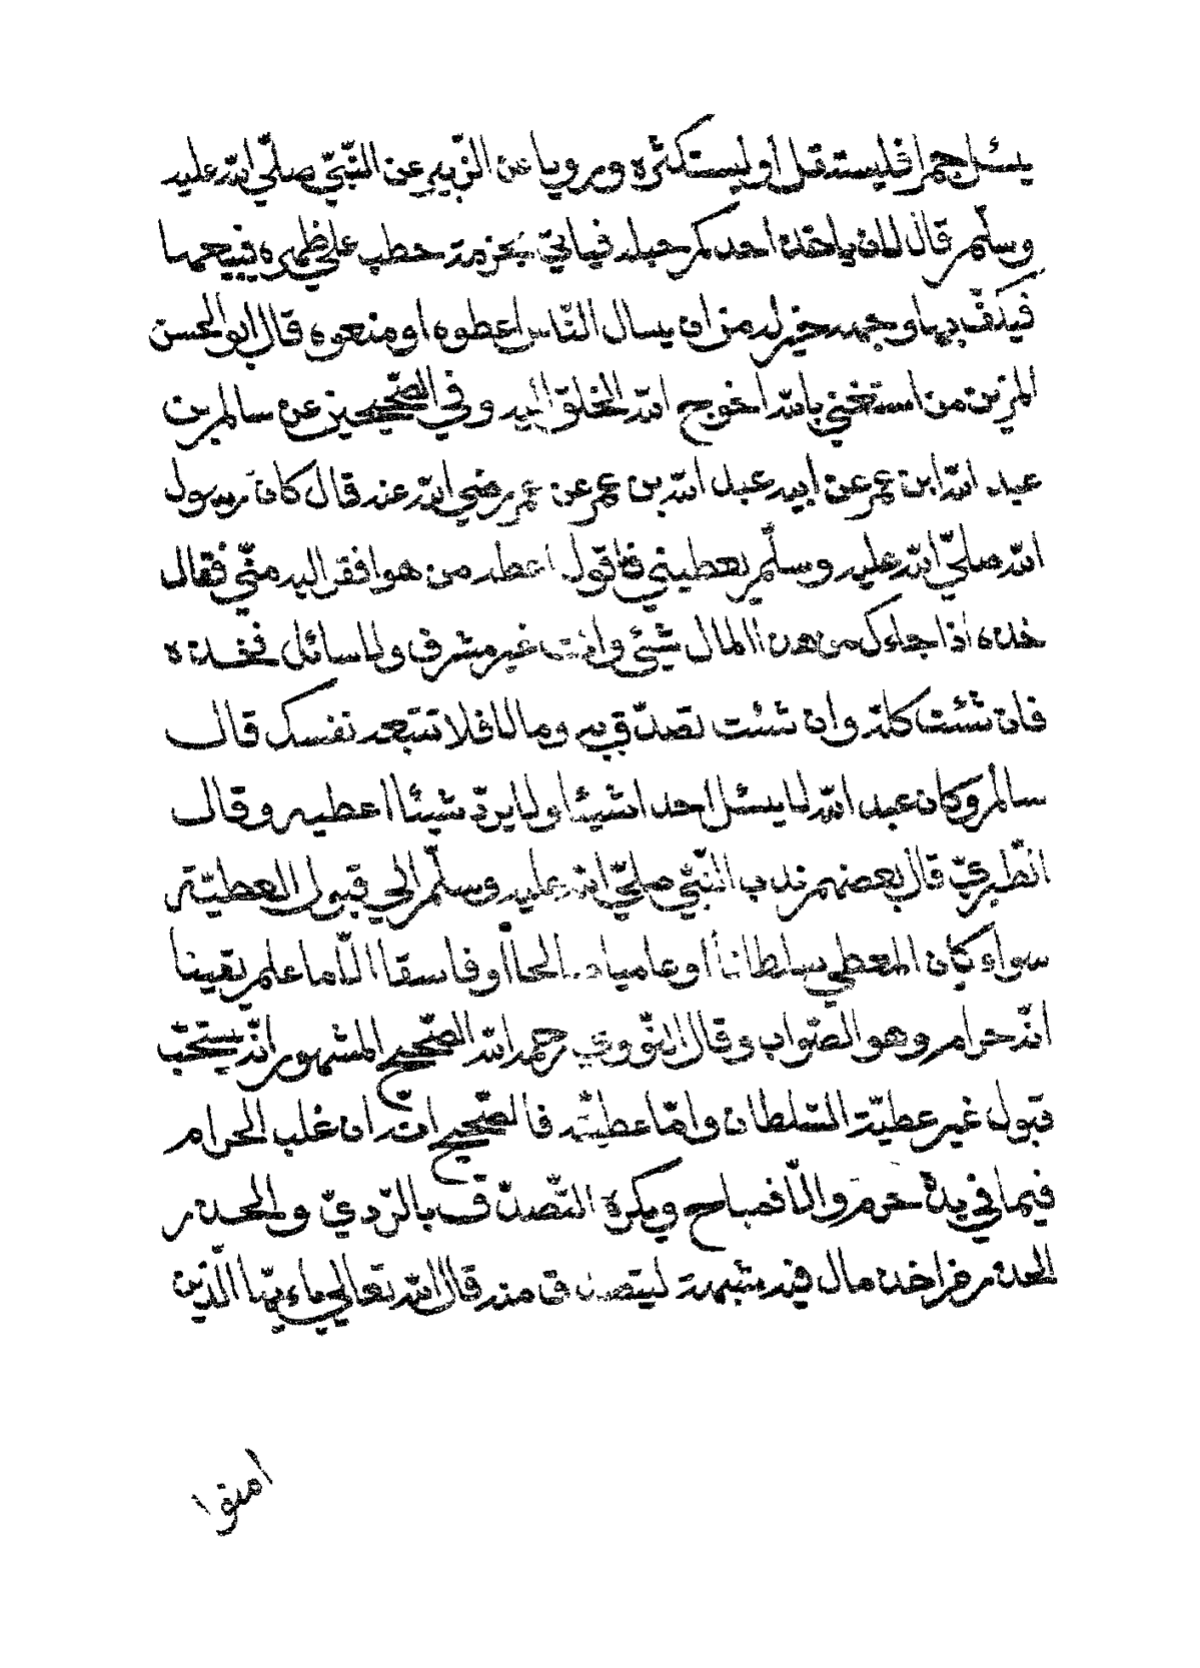 يسئل جمرا فليستقل أو ليستكثره ورويا عن الزّبير عن النّبيّ صلّي الله عليه
وسلّم قال لان ياخذ احدكم حبله فياتيّ بحزمة حطب علي ظهره فيبيعها
فيكفّ بها وجهه خير له من ان يسال النّاس اعطوه او منعوه قال ابو الحسن
المزين من استغني بالله احوج الله الخلق اليه وفي الصّحيحين عن سالم بن
عبد الله ابن عمر عن ابيه عبد الله بن عمر عن عمر رضي الله عنه قال كان رسول
الله صلّي الله عليه وسلّم يعطيني فاقول اعطه من هو افقر اليه منّي فقال
خذه اذا جاءك من هذا المال شيئ وانت غير مشرف ولا سائل فخذه
فان شئت كله وان شئت تصدّق به وما لا فلا تتبعه نفسك قال
سالم وكان عبد الله لا يسئل احدا شيئا ولا يردّ شيئا اعطيه وقال
الطّبريّ قال بعضهم ندب النّبيّ صلّي الله عليه وسلّم الي قبول العطيّة
سواء كان المعطي سلطاناً او عاميا صالحا أو فاسقا الّا ما علم يقينا
انّه حرام وهو الصّواب وقال النّووي رحمه الله الصّحيح المشهور انّه يستحّب
قبول غير عطيّة السّلطان وامّا عطيّته فالصّحيح انّه ان غلب الحرام
فيما في يده حرم والّا فمباح ويكره التّصدّق بالرّديّ والحذر
الحذر من اخذ مال فيه شبهة ليتصدق منه قال الله تعالي ياء يّها الّذين
امنوا